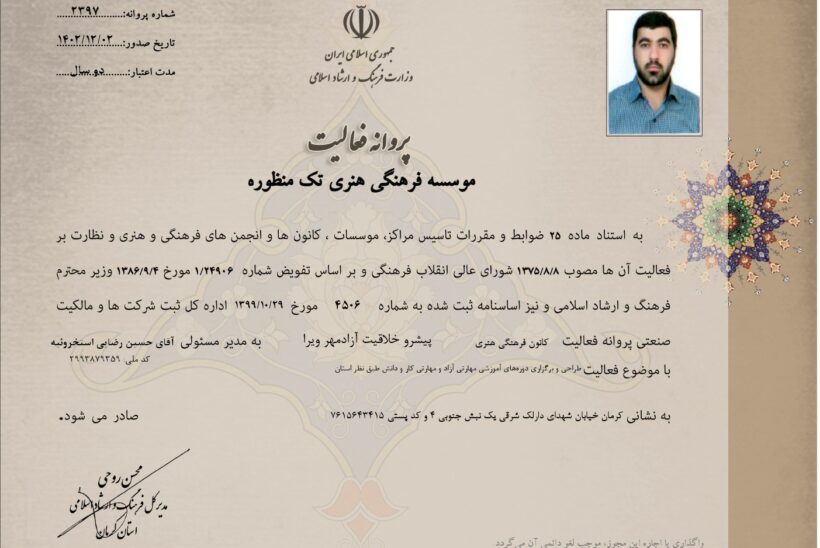 شماره پروانه: ۲۳۹۷
تاریخ صدور: ۱۴۰۲/۱۲/۰۲
مدت اعتبار: دو سال
جمهوری اسلامی ایران
وزارت فرهنگ و ارشاد اسلامی
پروانه فعالیت
موسسه فرهنگی هنری تک منظوره
به استناد ماده ۲۵ ضوابط و مقررات تاسیس مراکز، موسسات ، کانون ها و انجمن های فرهنگی و هنری و نظارت بر
فعالیت آن ها مصوب ۱۳۷۵/۸/۸ شورای عالی انقلاب فرهنگی و بر اساس تفویض شماره ۱/۲۴۹۰۶ مورخ ۱۳۸۶/۹/۴ وزیر محترم
فرهنگ و ارشاد اسلامی و نیز اساسنامه ثبت شده به شماره ۴۵۰۶ مورخ ۱۳۹۹/۱۰/۲۹ اداره کل ثبت شرکت ها و مالکیت
صنعتی پروانه فعالیت کانون فرهنگی هنری پیشرو خلاقیت آزادمهر ویرا به مدیر مسئولی آقای حسین رضایی استخروئیه
کد ملی: ۲۹۹۳۸۷۹۳۵۹
با موضوع فعالیت طراحی و برگزاری دوره‌های آموزشی مهارتی آزاد و مهارتی کار و دانش طبق نظر استان
به نشانی کرمان خیابان شهدای دارلک شرقی یک نبش جنوبی ۴ و کد پستی ۷۶۱۵۶۴۳۴۱۵ صادر می شود.
محسن روحی
مدیر کل فرهنگ و ارشاد اسلامی
استان کرمان
واگذاری یا اجاره این مجوز، موجب لغو دائمی آن می‌گردد